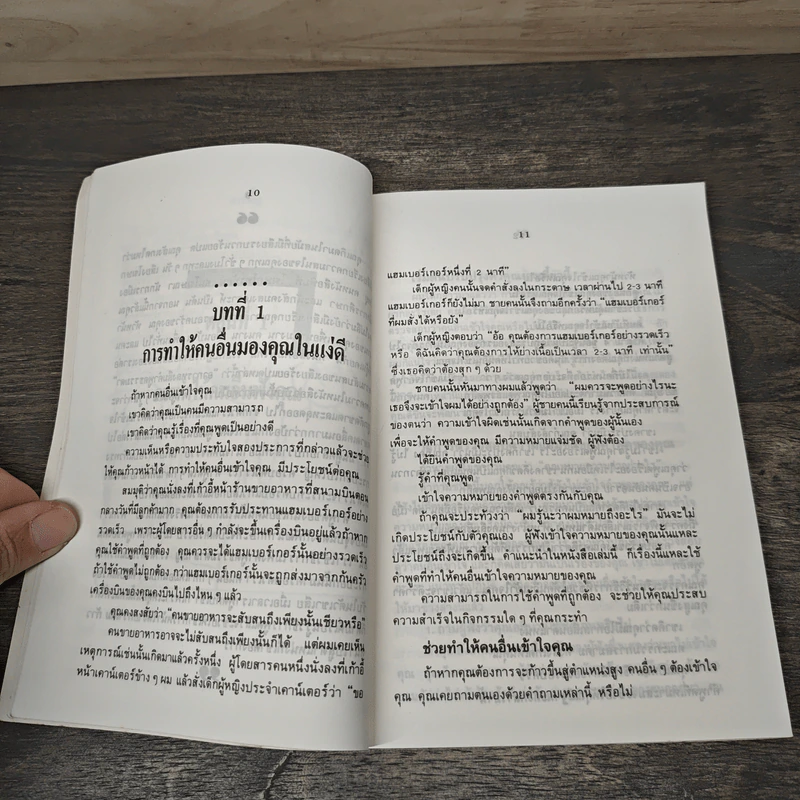 10
......
บทที่ 1
การทำให้คนอื่นมองคุณในแง่ดี
ถ้าหากคนอื่นเข้าใจคุณ
เขาคิดว่าคุณเป็นคนมีความสามารถ
เขาคิดว่าคุณรู้เรื่องที่คุณพูดเป็นอย่างดี
ความเห็นหรือความประทับใจสองประการที่กล่าวแล้วจะช่วย
ให้คุณก้าวหน้าได้ การทำให้คนอื่นเข้าใจคุณ มีประโยชน์ต่อคุณ
สมมุติว่าคุณนั่งลงที่เก้าอี้หน้าร้านขายอาหารที่สนามบินตอน
กลางวันที่มีลูกค้ามาก คุณต้องการรับประทานแฮมเบอร์เกอร์อย่าง
รวดเร็ว เพราะผู้โดยสารอื่น ๆ กำลังจะขึ้นเครื่องบินอยู่แล้วถ้าหาก
คุณใช้คำพูดที่ถูกต้อง คุณควรจะได้แฮมเบอร์เกอร์นั้นอย่างรวดเร็ว
ถ้าใช้คำพูดไม่ถูกต้อง กว่าแฮมเบอร์เกอร์นั้นจะถูกส่งมาจากก้นครัว
เครื่องบินของคุณคงบินไปถึงไหน ๆ แล้ว
คุณคงสงสัยว่า "คนขายอาหารจะสับสนถึงเพียงนั้นเชียวหรือ"
คนขายอาหารอาจจะไม่สับสนถึงเพียงนั้นก็ได้ แต่ผมเคยเห็น
เหตุการณ์เช่นนั้นเกิดมาแล้วครั้งหนึ่ง ผู้โดยสารคนหนึ่งนั่งลงที่เก้าอี้
หน้าเคาน์เตอร์ข้าง ๆ ผม แล้วสั่งเด็กผู้หญิงประจำเคาน์เตอร์ว่า "ขอ
11
แฮมเบอร์เกอร์หนึ่งที่ 2 นาที"
เด็กผู้หญิงคนนั้นจดคำสั่งลงในกระดาษ เวลาผ่านไป 2-3 นาที
แฮมเบอร์เกอร์ก็ยังไม่มา ชายคนนั้นจึงถามอีกครั้งว่า "แฮมเบอร์เกอร์
ที่ผมสั่งได้หรือยัง"
เด็กผู้หญิงตอบว่า "อ้อ คุณต้องการแฮมเบอร์เกอร์อย่างรวดเร็ว
หรือ ดิฉันคิดว่าคุณต้องการให้ย่างเนื้อเป็นเวลา 2-3 นาที เท่านั้น"
ซึ่งเธอคิดว่าต้องสุก ๆ ด้วย
ชายคนนั้นหันมาทางผมแล้วพูดว่า "ผมควรจะพูดอย่างไรนะ
เธอจึงจะเข้าใจผมได้อย่างถูกต้อง" ผู้ชายคนนี้เรียนรู้จากประสบการณ์
ของตนว่า ความเข้าใจผิดเช่นนั้นเกิดจากคำพูดของผู้นั้นเอง
เพื่อจะให้คำพูดของคุณ มีความหมายแจ่มชัด ผู้ฟังต้อง
ได้ยินคำพูดของคุณ
รู้คำที่คุณพูด
เข้าใจความหมายของคำพูดตรงกันกับคุณ
ถ้าคุณจะประท้วงว่า "ผมรู้นะว่าผมหมายถึงอะไร" มันจะไม่
เกิดประโยชน์กับตัวคุณเอง ผู้ฟังเข้าใจความหมายของคุณนั้นแหละ
ประโยชน์ถึงจะเกิดขึ้น คำแนะนำในหนังสือเล่มนี้ ก็เรื่องนี้แหละใช้
คำพูดที่ทำให้คนอื่นเข้าใจความหมายของคุณ
ความสามารถในการใช้คำพูดที่ถูกต้อง จะช่วยให้คุณประสบ
ความสำเร็จในกิจกรรมใด ๆ ที่คุณกระทำ
ช่วยทำให้คนอื่นเข้าใจคุณ
ถ้าหากคุณต้องการจะก้าวขึ้นสู่ตำแหน่งสูง คนอื่น ๆ ต้องเข้าใจ
คุณ คุณเคยถามตนเองด้วยคำถามเหล่านี้ หรือไม่